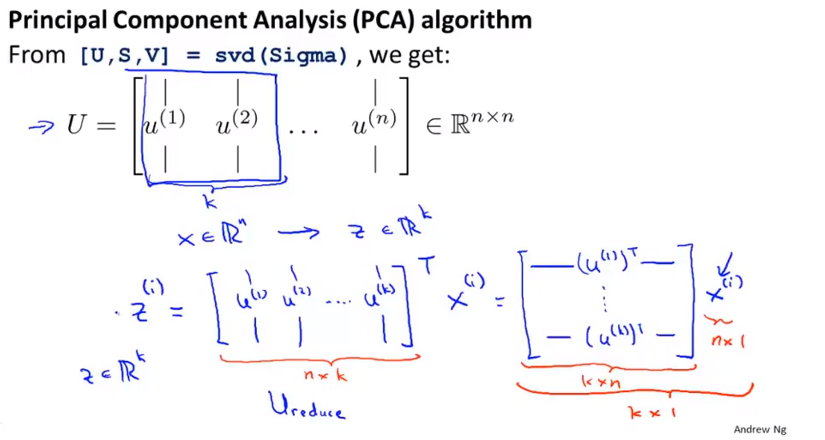 Principal Component Analysis (PCA) algorithm
From [U,S,V] = svd(Sigma), we get:
→ U = [ u^(1) u^(2) … u^(n) ] ∈ ℝ^{n×n}
k
x ∈ ℝ^n → z ∈ ℝ^k
z^(i) = [ u^(1) u^(2) .... u^(k) ]^T x^(i) = [ —(u^(1))^T— ⋮ —(u^(k))^T— ] x^(i)
z ∈ ℝ^k
n × k
k × n
n × 1
U reduce
k × 1
Andrew Ng